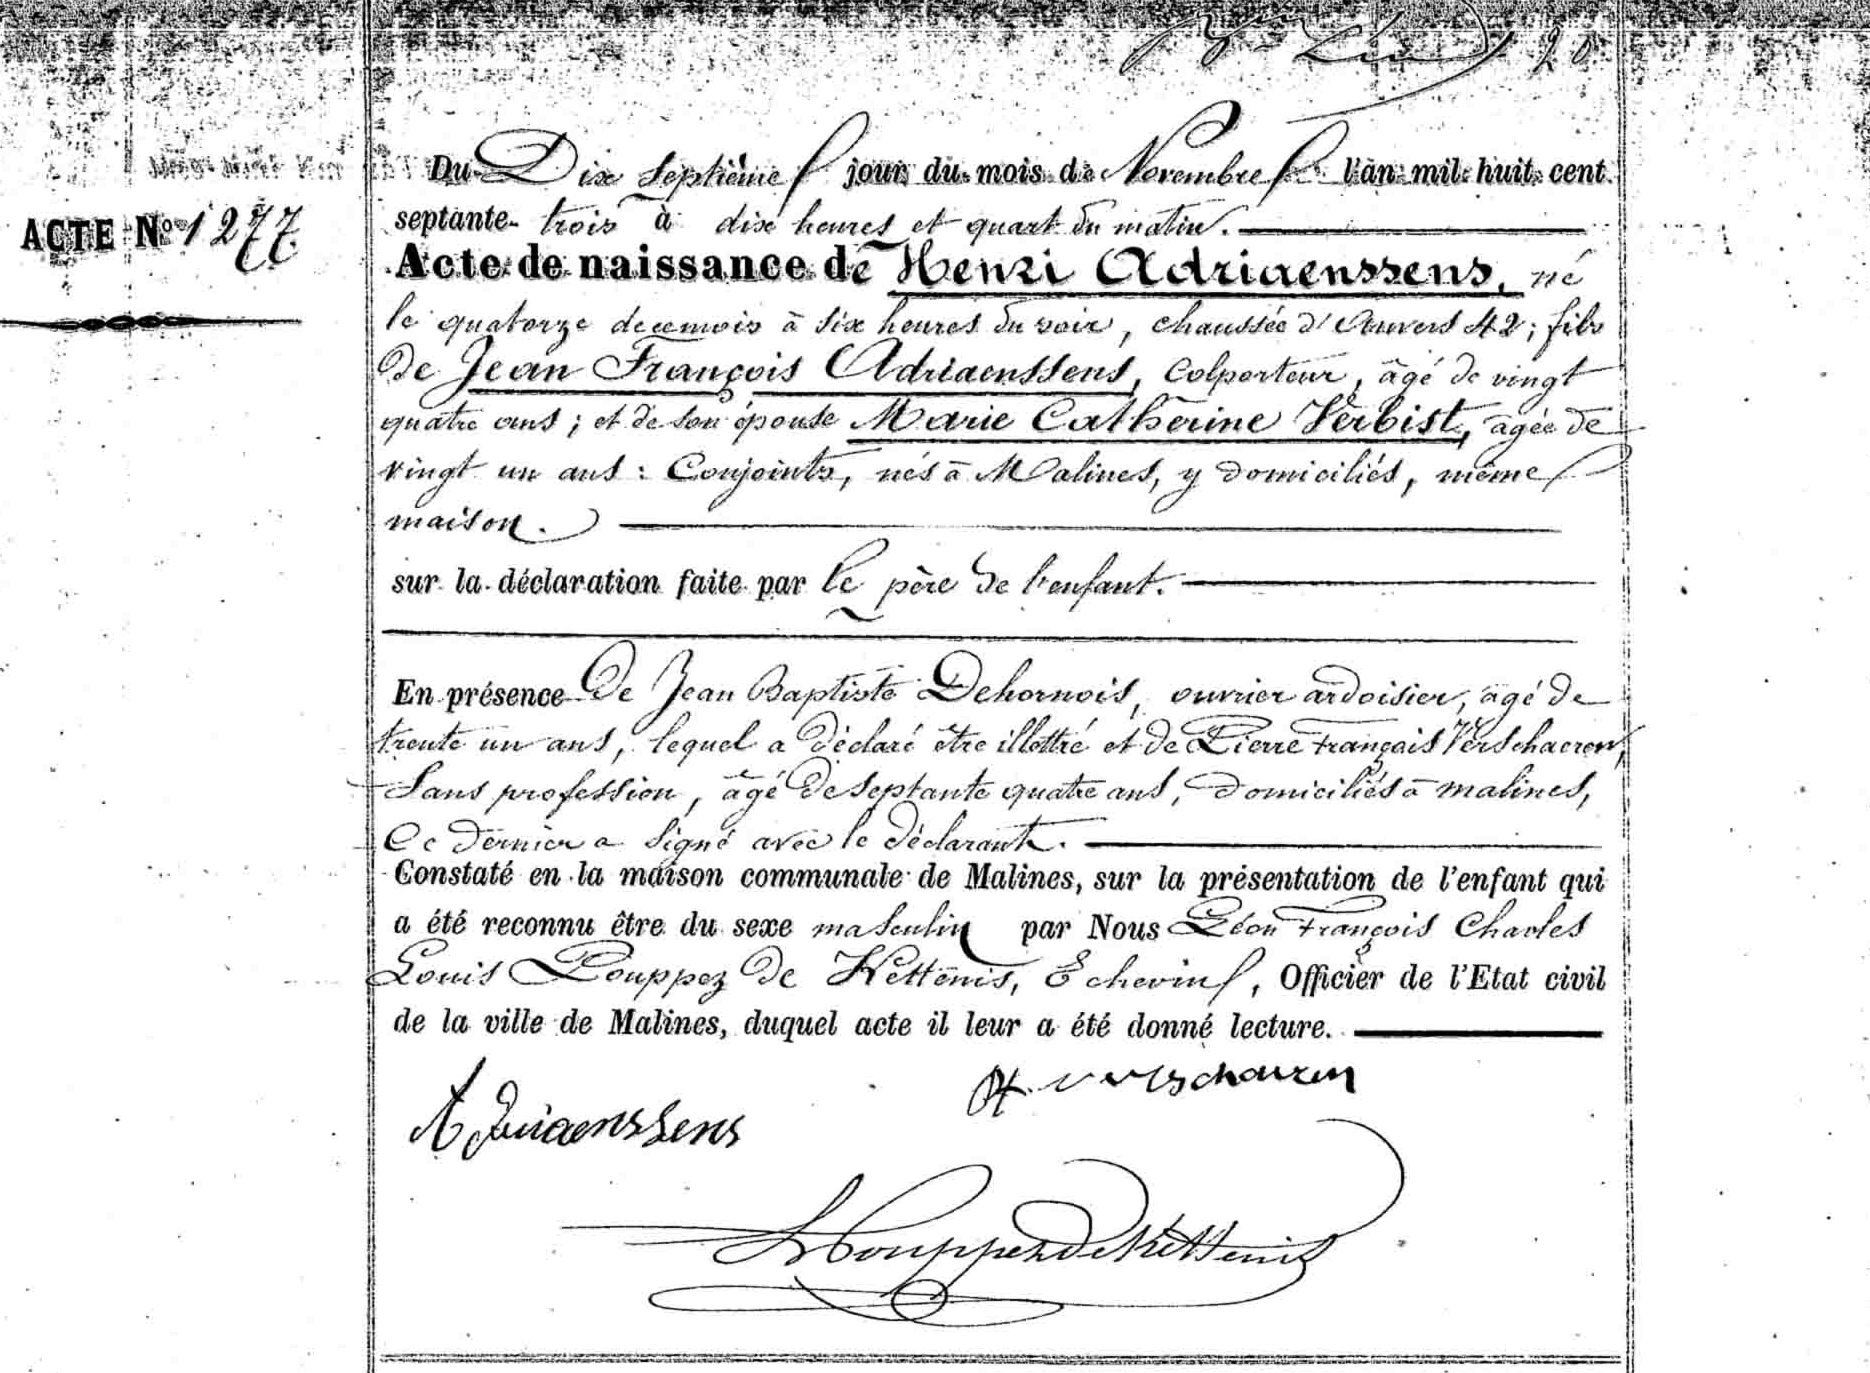 Du Dix Septième jour du mois de Novembre l'an mil huit cent
septante-trois à dix heures et quart du matin.
ACTE N° 1277
Acte de naissance de Henri Adriaenssens, né
le quatorze de ce mois à six heures du soir, chaussée d'Anvers 42; fils
de Jean François Adriaenssens, Colporteur, âgé de vingt
quatre ans; et de son épouse Marie Catherine Verbist, agée de
vingt un ans: Conjoints, nés à Malines, y domiciliés, même
maison.
sur la déclaration faite par le père de l'enfant.
En présence De Jean Baptiste Dehornois, ouvrier ardoisier, âgé de
trente un ans, lequel a déclaré être illettré et de Pierre François Verschaeren,
Sans profession, âgé de septante quatre ans, domiciliés à malines,
Ce dernier a signé avec le déclarant.
Constaté en la maison communale de Malines, sur la présentation de l'enfant qui
a été reconnu être du sexe masculin par Nous Léon François Charles
Louis Pouppez de Kettenis, Echevin, Officier de l'Etat civil
de la ville de Malines, duquel acte il leur a été donné lecture.
Verschaeren
Adriaenssens
Pouppez de Kettenis